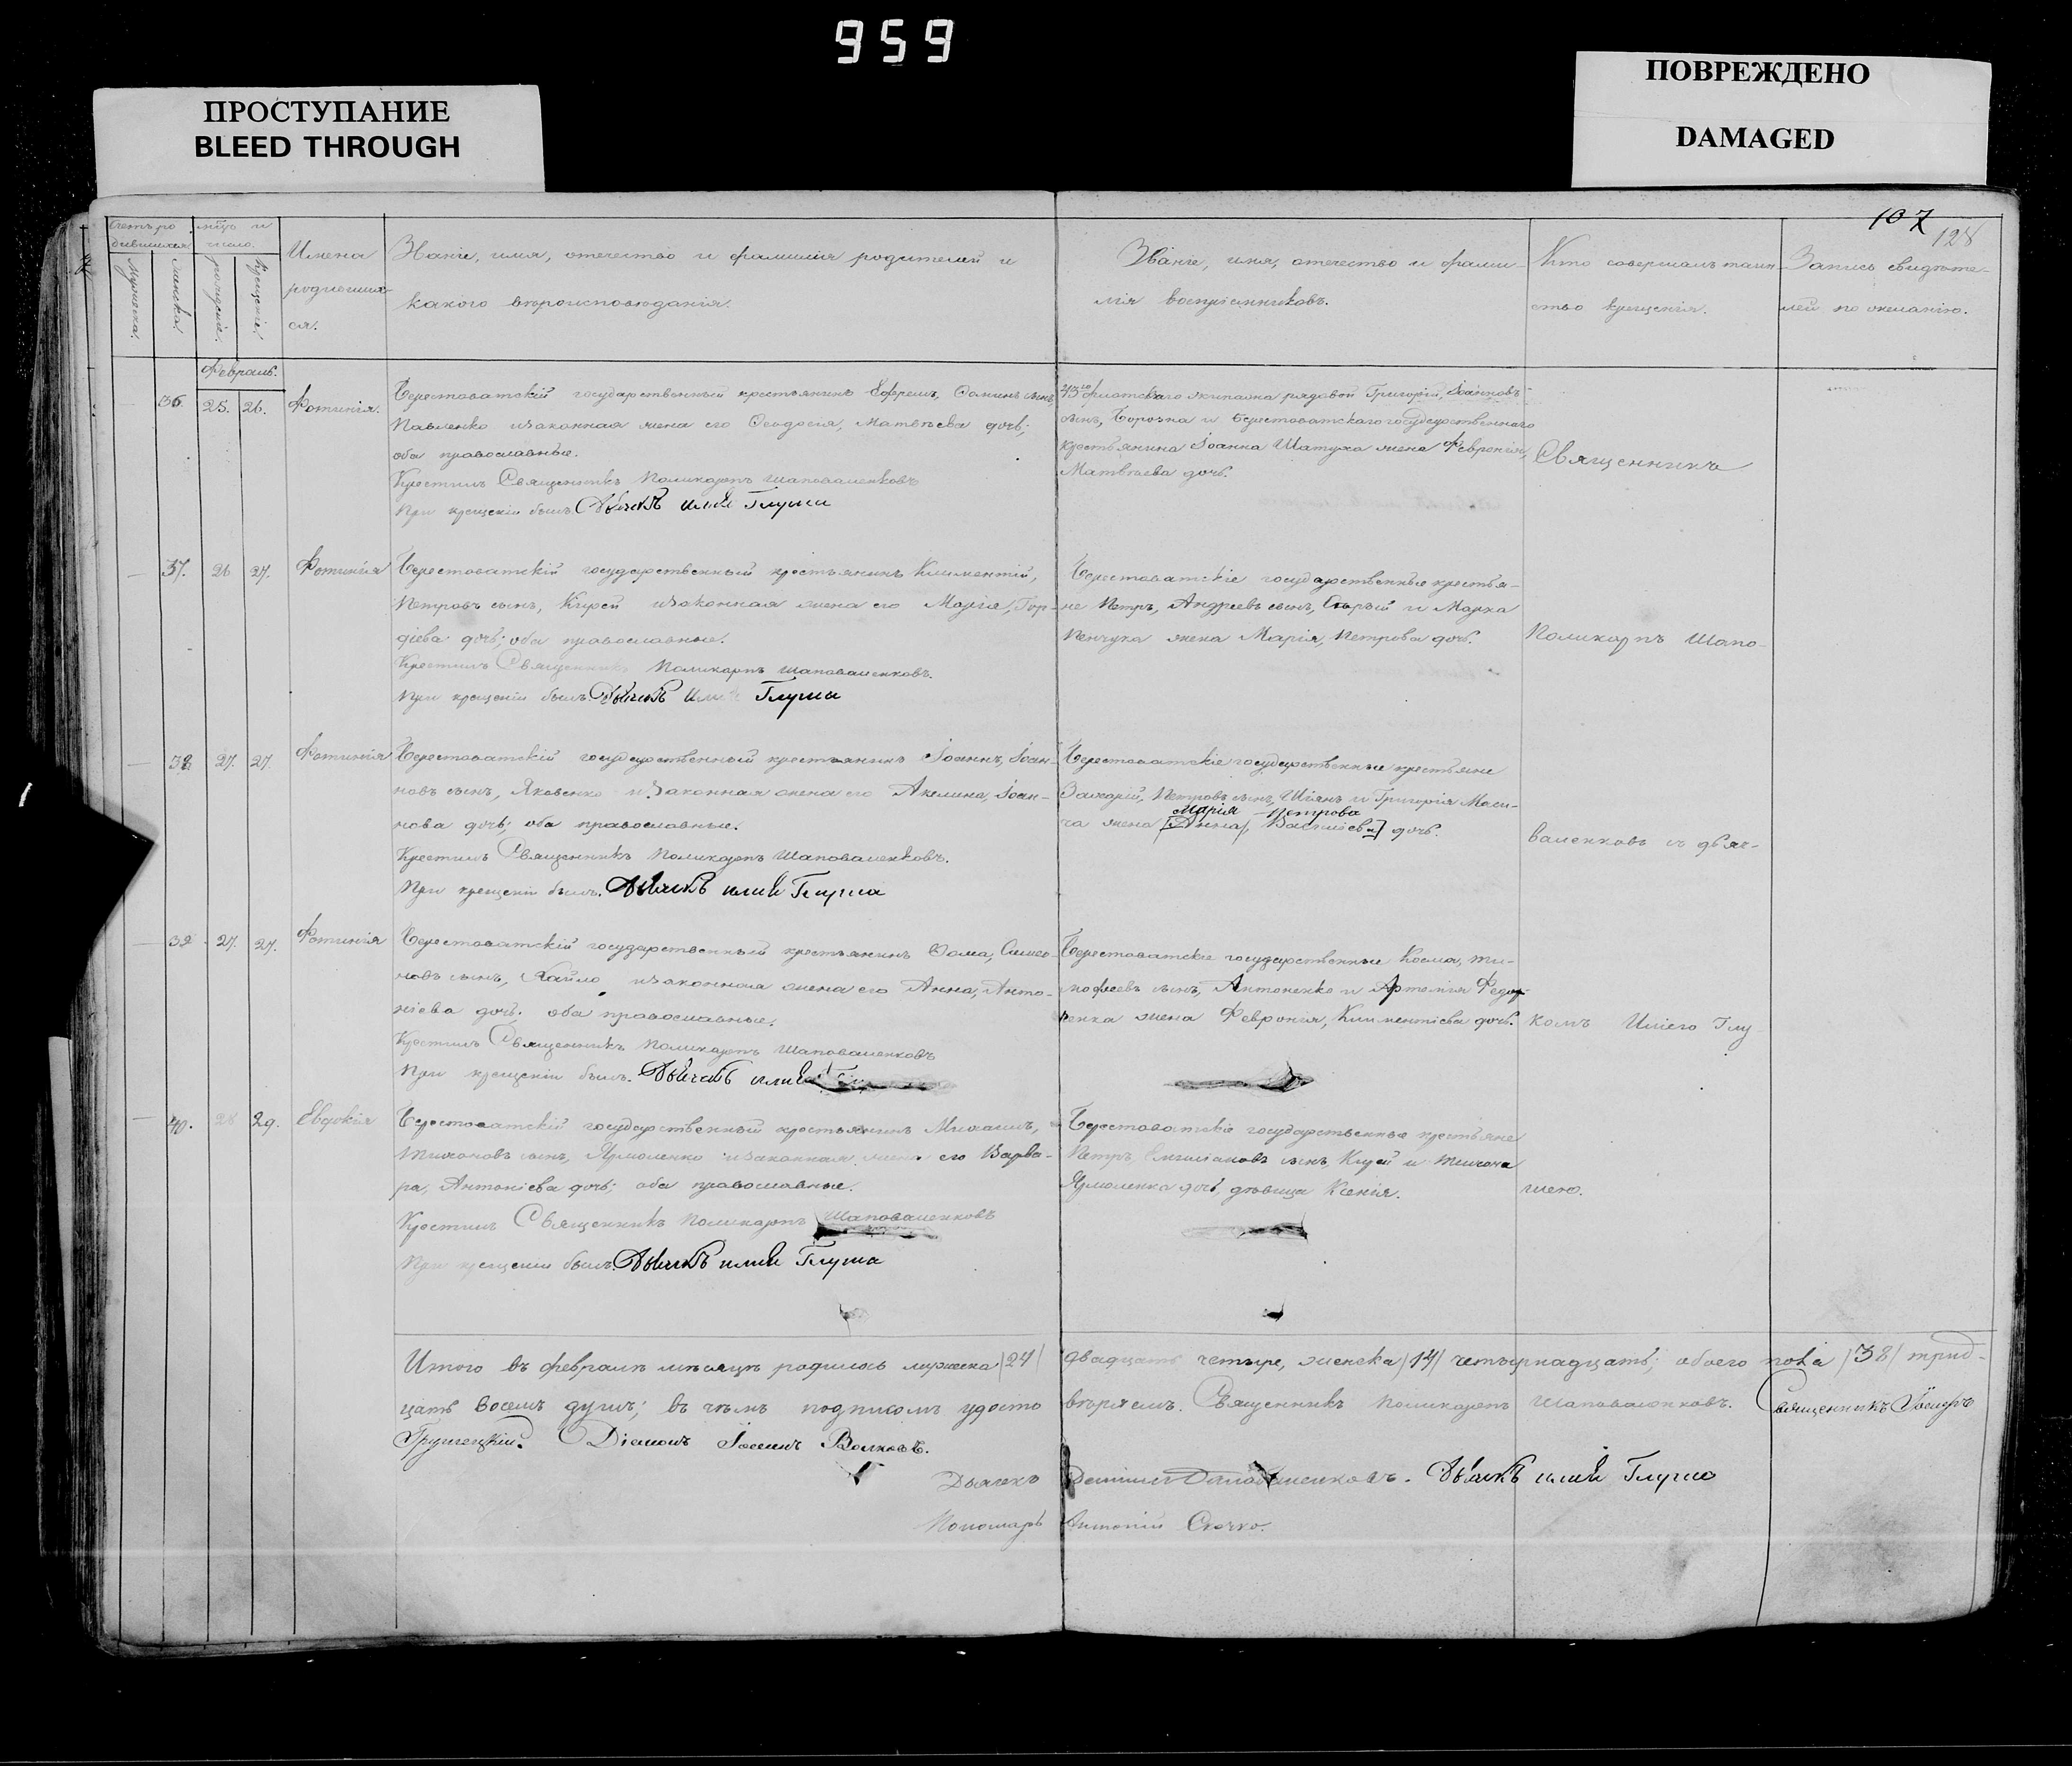 959
ПРОСТУПАНИЕ
BLEED THROUGH
ПОВРЕЖДЕНО
DAMAGED
107
128
Счетъ родившихся
мѣц и число
Мужеска.
Женска.
рожденiе.
крещенiе.
Имена
родивших-
ся.
Званiе, имя, отечество и фамилiя родителей и
какого вѣроисповѣданiя.
Званiе, имя, отечество и фами-
лiя воспрiемниковъ.
Кто совершалъ таин-
ство крещенiя.
Запись свидѣте-
лей по желанiю.
Февраль.
36. 25. 26. Фотинiя.
Берестоватскiй государственный крестьянинъ Ефремъ, сынъ
Павленко и законная жена его Феодосiя, Матвѣева дочь;
оба православные.
Крестилъ Священникъ Поликарпъ Шаповаленковъ
При крещенiи былъ Дьячекъ Илiя Глуша
45го флотскаго экипажа рядовой Григорiй, Iоанновъ
сынъ, и Берестоватскаго государственнаго
крестьянина Iоанна Шатуха жена Февронiя,
Матвѣева дочь.
Священникъ
37. 26 27. Фотинiя
Берестоватскiй государственный крестьянинъ Климентiй,
Петровъ сынъ, Кирей и законная жена его Марiя, Гор-
дiева дочь; оба православные.
Крестилъ Священникъ Поликарпъ Шаповаленковъ.
При крещенiи былъ Дьячекъ Илiя Глуша
Берестоватскiе государственные крестья-
не Петръ, Андреевъ сынъ, и Марка
Пенчука жена Марiя, Петрова дочь.
Поликарпъ Шапо-
38 27. 27. Фотинiя
Берестоватскiй государственный крестьянинъ Iоаннъ, Iоан-
новъ сынъ, Яковенко и законная жена его Акелина, Iоан-
нова дочь; оба православные.
Крестилъ Священникъ Поликарпъ Шаповаленковъ.
При крещенiи былъ. Дьячекъ Илiя Глуша
Берестоватскiе государственные крестьяне
Захарiй, Петровъ сынъ, Шiянъ и Григорiя Маси-
Марiя Петрова
ча жена [Анна, Васильева] дочь.
валенковъ съ дьяч-
39 27. 27. Фотинiя
Берестоватскiй государственный крестьянинъ Фома, Симео-
новъ сынъ, Хайло и законная жена его Анна, Анто-
нiева дочь; оба православные.
Крестилъ Священникъ Поликарпъ Шаповаленковъ
При крещенiи былъ. Дьячекъ Илiя
Берестоватскiе государственные Косма, Ти-
мофеевъ сынъ, Антоненко и Артемiя Федор-
ченка жена Февронiя, Климентiева дочь.
комъ Илiею Глу-
40. 28 29. Евдокiя
Берестоватскiй государственный крестьянинъ Михаилъ,
Тихоновъ сынъ, Ярмоленко и законная жена его Варва-
ра, Антонiева дочь; оба православные.
Крестилъ Священникъ Поликарпъ Шаповаленковъ
При крещенiи былъ Дьячекъ Илiя Глуша
Берестоватскiе государственные крестьяне
Петръ, сынъ, Кирей и Тихона
Ярмоленка дочь, дѣвица Ксенiя.
шею.
Итого въ февралѣ мѣсяцѣ родилось мужеска /24/ двадцать четыре, женска /14/ четырнадцать; обоего пола /38/ трид-
цать восемь душъ; въ чемъ подписомъ удосто вѣряемъ. Священникъ Поликарпъ Шаповаленковъ. Священникъ Iосифъ
Дiаконъ Волковъ.
Дьячекъ Шаповаленковъ. Дьячекъ Илiя Глуша
Пономарь Антонiй